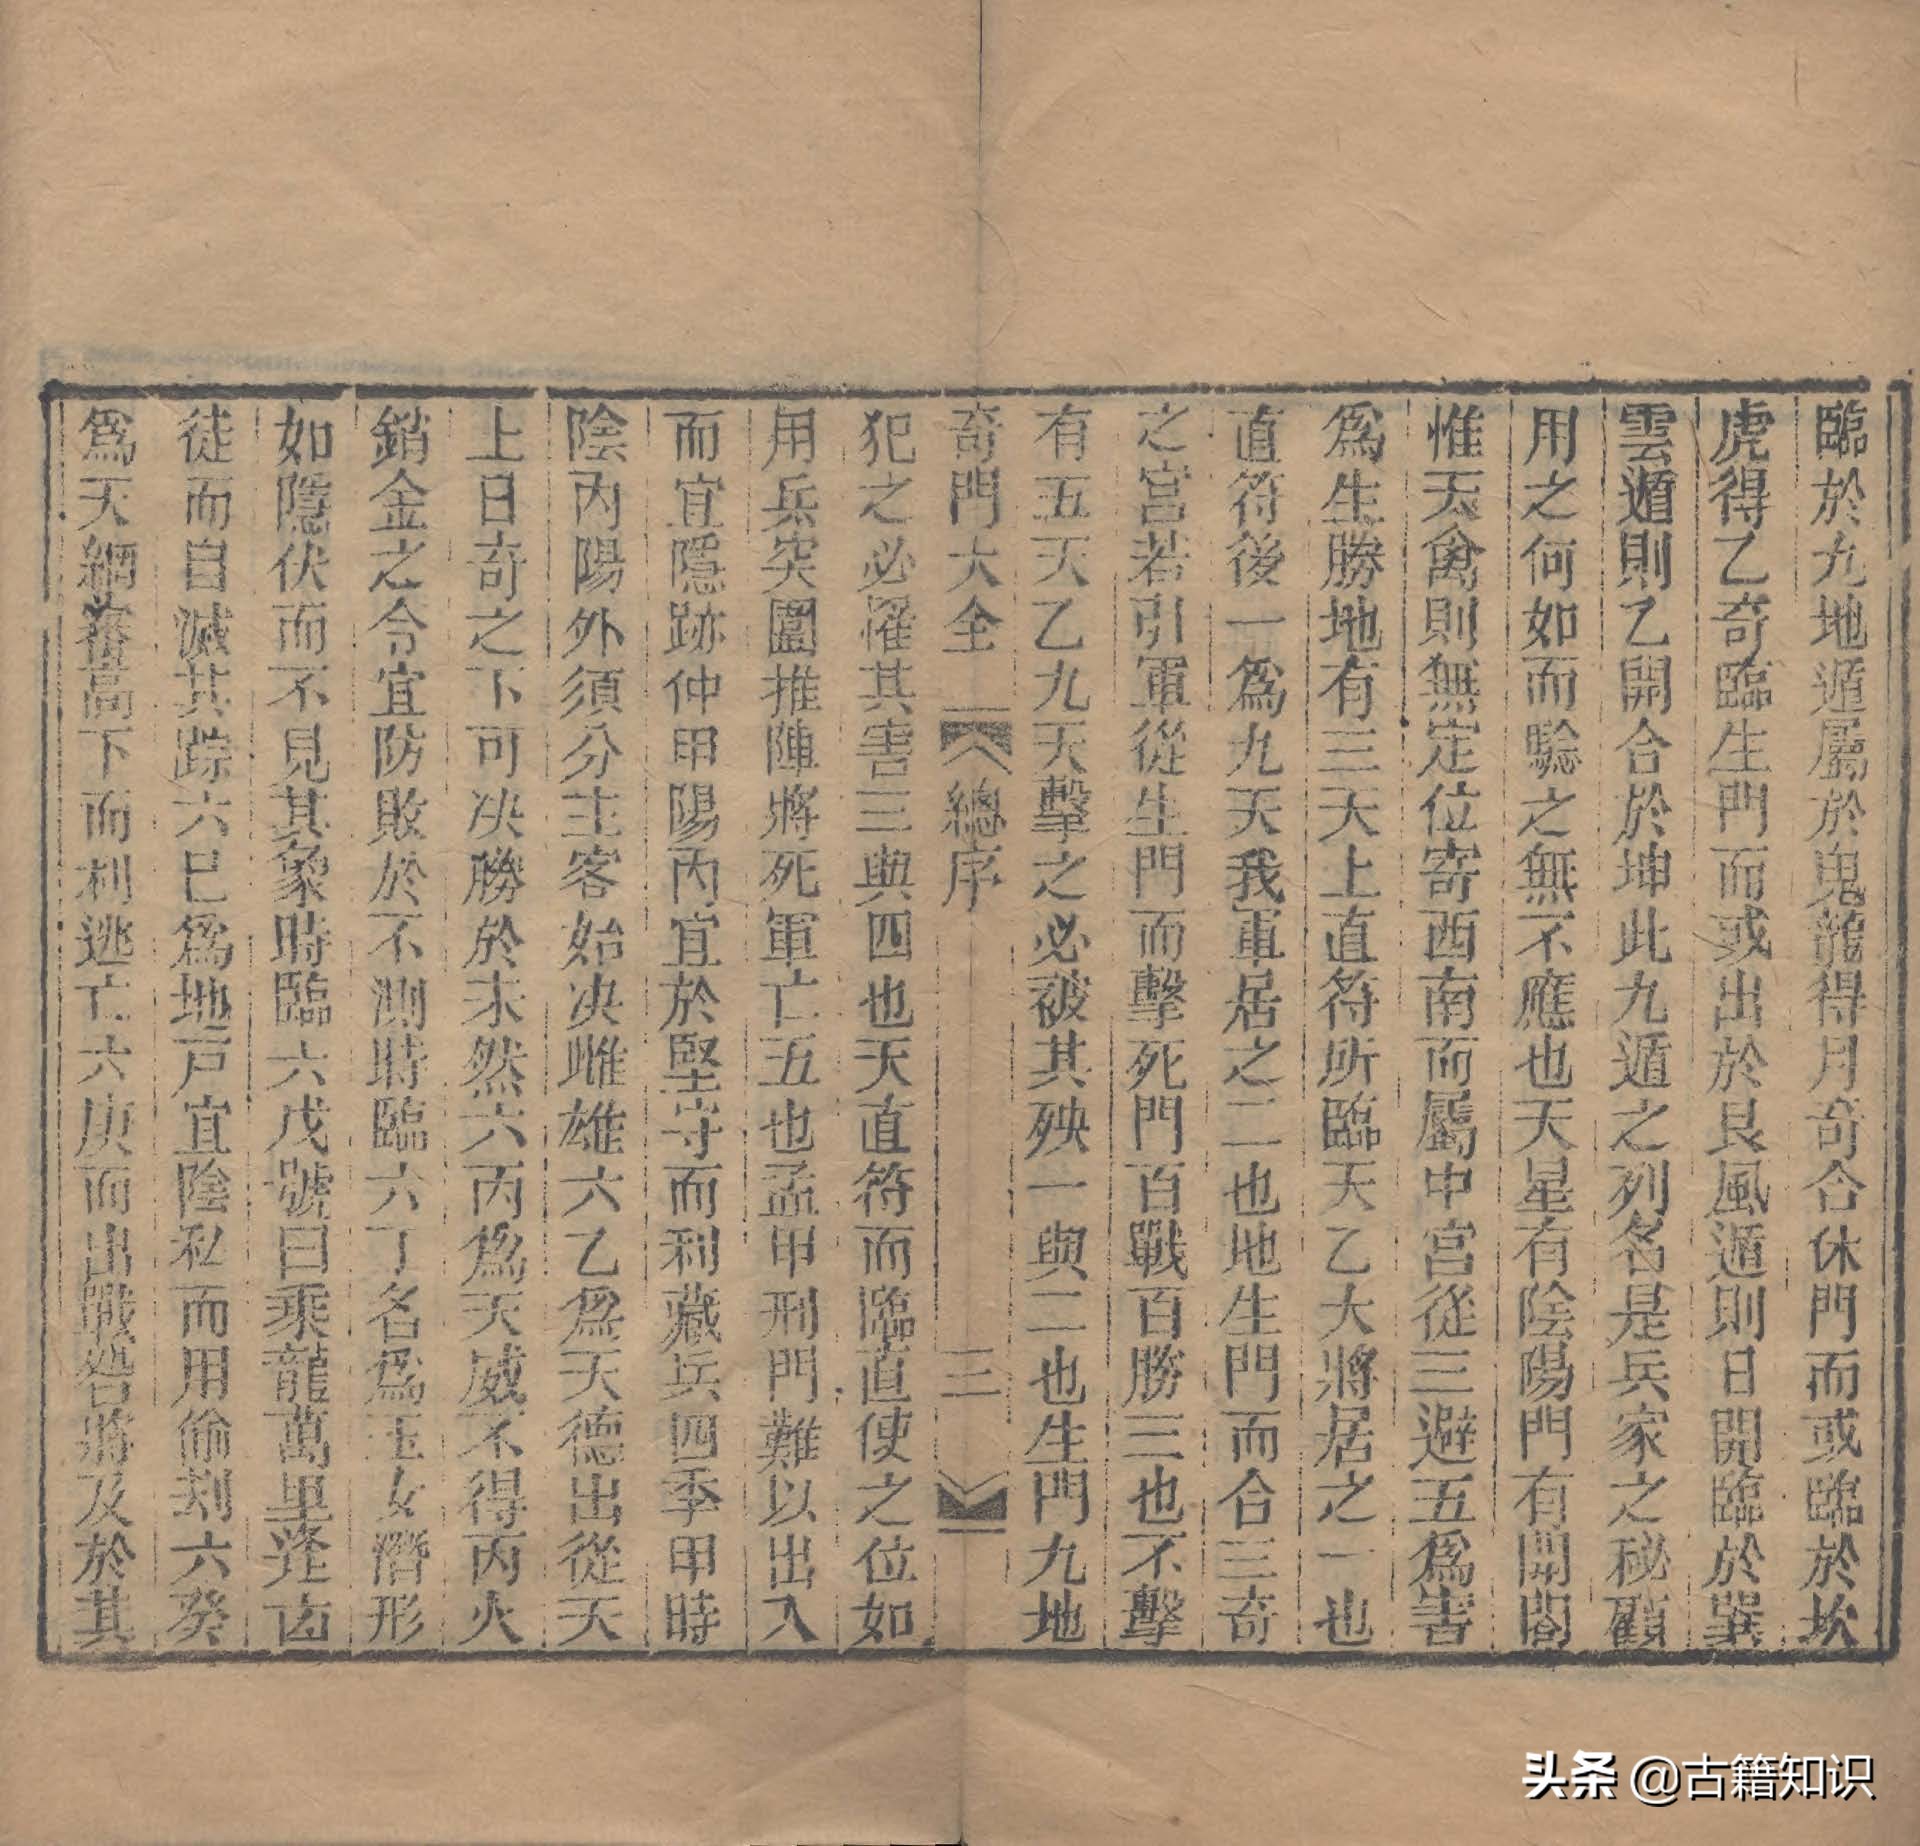 臨於九地遁屬於鬼龍得月奇合休門而或臨於坎
虎得乙奇臨生門而或出於艮風遁則日開臨於巽
雲遁則乙開合於坤此九遁之列名是兵家之秘顧
用之何如而驗之無不應也天星有陰陽門有開闔
惟天禽則無定位寄西南而屬中宮從三避五爲害
爲生勝地有三天上直符所臨天乙大將居之一也
直符後一爲九天我軍居之二也地生門而合三奇
之宮若引軍從生門而擊死門百戰百勝三也不擊
有五天乙九天擊之必被其殃一與二也生門九地
奇門大全 總序 三
犯之必罹其害三與四也天直符而臨直使之位如
用兵突圍推陣將死軍亡五也孟甲刑門難以出入
而宜隱跡仲甲陽內宜於堅守而利藏兵四季甲時
陰內陽外須分主客始决雌雄六乙爲天德出從天
上日奇之下可决勝於未然六丙爲天威不得丙火
銷金之令宜防敗於不測時臨六丁名爲玉女潛形
如隱伏而不見其象時臨六戊號曰乘龍萬里逢凶
徒而自滅其踪六巳爲地戸宜陰私而用偷刦六癸
爲天網審高下而利逃亡六庚而出戰咎將及於其
头条 @古籍知识